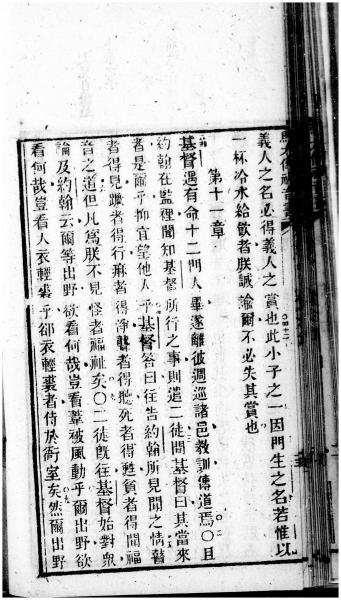 義人之名必得義人之賞也此小子之一因門生之名若惟以
一杯冷水給飲者朕誠諭爾不必失其賞也
第十一章
基督遇有命十二門人畢遂離彼週巡諸邑教訓傳道焉〇且
約翰在監裡聞知基督所行之事則遣二徒問基督曰其當來
者是爾乎抑宜望他人乎基督答曰往告約翰所見聞之情瞽
者得見躚者得行麻者得淨聾者得聽死者得甦貧者得聞福
音之道但凡為朕不見怪者福祉矣〇二徒旣往基督始對衆
論及約翰云爾等出野欲看何哉豈看葦被風動乎爾出野欲
看何哉豈看人衣輕裘乎卻衣輕裘者侍於衙室矣然爾出野